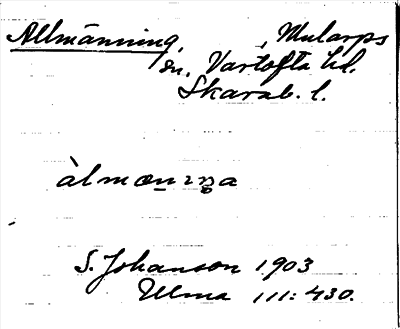 Allmänning, , Mularps
sn. Vartofta hd.
Skarab. l.
àlmænɪŋa
S. Johanson 1903
Ulma 111: 430.